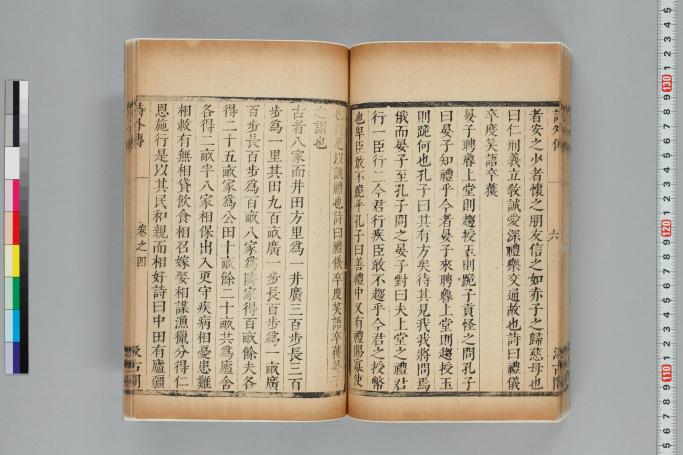 者安之少者懷之朋友信之如赤子之歸慈母也
曰仁刑義立教誠愛深禮樂交通故也詩曰禮儀
卒度笑語卒獲
晏子聘魯上堂則趨授玉則跪子貢怪之問孔子
曰晏子知禮乎今者晏子來聘魯上堂則趨授玉
則跪何也孔子曰其有方矣待其見我我將問焉
俄而晏子至孔子問之晏子對曰夫上堂之禮君
行一臣行二今君行疾臣敢不趨乎今君之授幣
也卑臣敢不跪乎孔子曰善禮中又有禮賜寡使
也 以識禮也詩曰禮儀卒度笑語卒獲晏子
之謂也
古者八家而井田方里爲一井廣三百步長三百
步爲一里其田九百畝廣一步長百步爲一畝廣
百步長百步爲百畝八家爲鄰家得百畝餘夫各
得二十五畝家爲公田十畝餘二十畝共爲廬舍
各得二畝半八家相保出入更守疾病相憂患難
相救有無相貸飲食相召嫁娶相謀漁獵分得仁
恩施行是以其民和親而相好詩曰中田有廬疆
詩外傳
卷之四
汲古閣
六